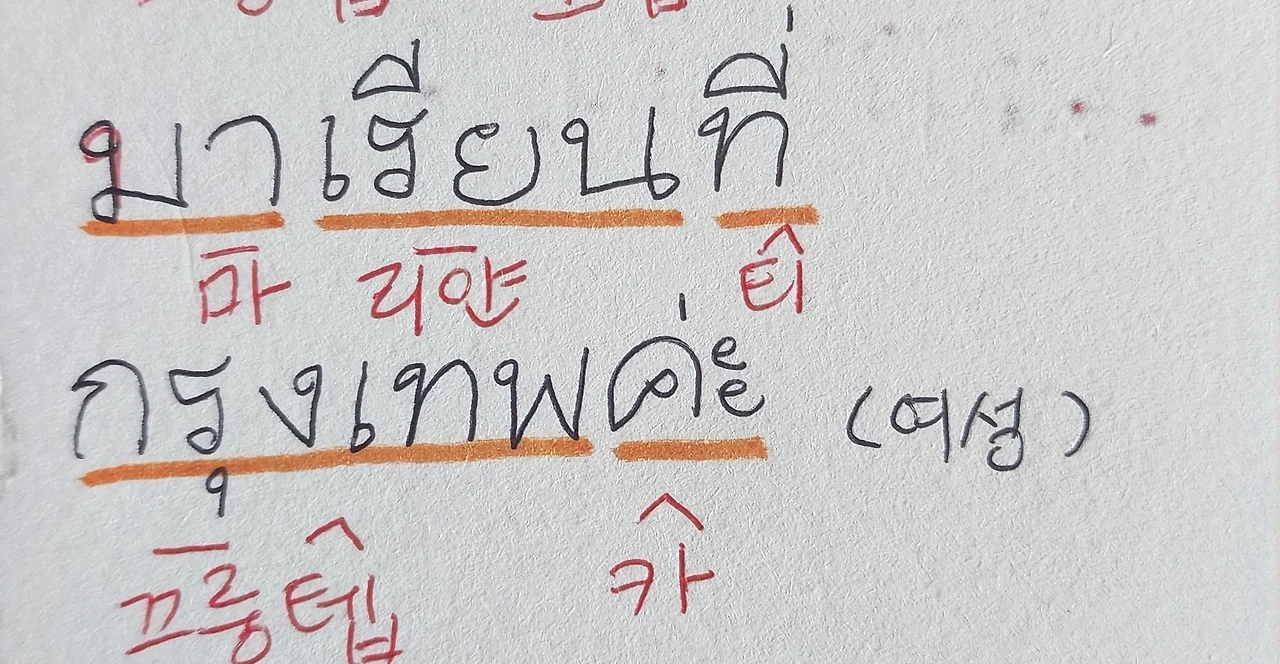 มาเรียนที่
마 리얀 티
กรุงเทพค่ะ (여성)
끄룽텝 카